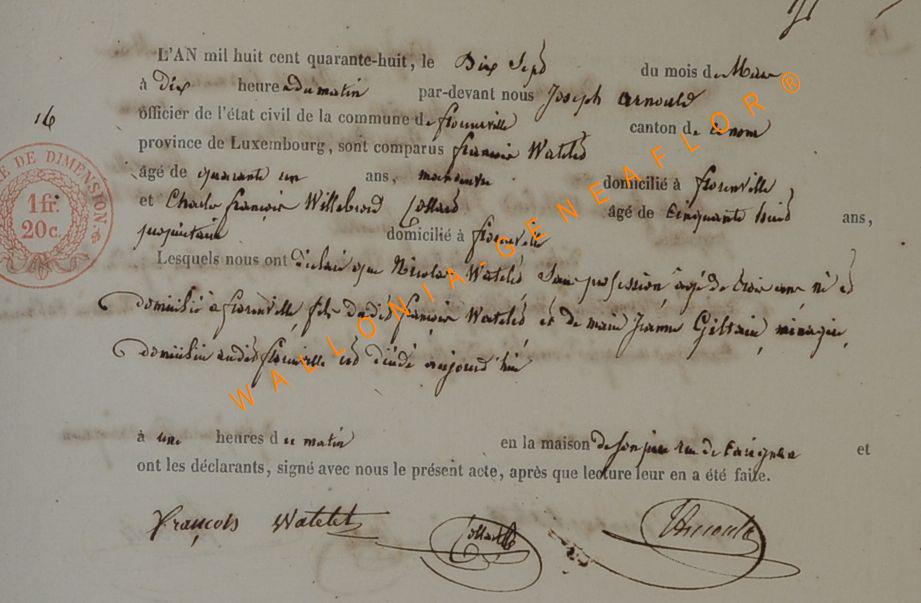 L'AN mil huit cent quarante-huit, le Dix Sept du mois de Mars
à dix heures du matin par-devant nous Joseph Arnould
16 officier de l'état civil de la commune de florenville canton de ce nom
province de Luxembourg, sont comparus françois Watelet
TIMBRE DE DIMENSION.
1 fr.
20 c.
âgé de quarante un ans, manoeuvre domicilié à florenville
et Charles françois Willebrord Collard âgé de Cinquante huit ans,
propriétaire domicilié à florenville
Lesquels nous ont déclaré que Nicolas Watelet Sans profession âgé de trois ans, né et
domicilié à florenville, fils dudit françois Watelet et de marie Jeanne Gillain, ménagère,
domiciliée audit florenville est décédé aujourd'hui
à une heures du matin en la maison de son père rue de Carignan et
ont les déclarants, signé avec nous le présent acte, après que lecture leur en a été faite.
François Watelet Collard Arnould
WALLONIA-GENEAFLOR®